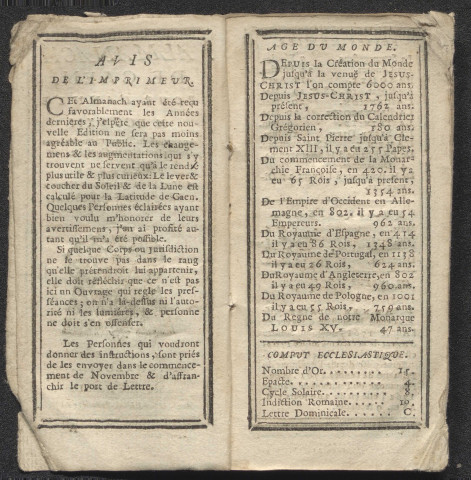 AVIS
DE L'IMPRIMEUR.
CEt Almanach ayant été reçu
favorablement les Années
dernieres, j'espère que cette nou-
velle Edition ne sera pas moins
agréable au Public. Les change-
mens & les augmentations qui s'y
trouvent ne servent qu'à le rendre
plus utile & plus curieux. Le lever &
coucher du Soleil & de la Lune est
calculé pour la Latitude de Caen.
Quelques Personnes éclairées ayant
bien voulu m'honorer de leurs
avertissemens, j'en ai profité au-
tant qu'il m'a été possible.
Si quelque Corps ou jurisdiction
ne se trouve pas dans le rang
qu'elle prétendroit lui appartenir,
elle doit réfléchir que ce n'est pas
ici un Ouvrage qui regle les pres-
séances ; on n'a là-dessus ni l'autori-
té ni les lumières, & personne
ne doit s'en offenser.
Les Personnes qui voudront
donner des instructions, sont priés
de les envoyer dans le commence-
ment de Novembre & d'affran-
chir le port de Lettre.
AGE DU MONDE.
DEPUIS la Création du Monde
jusqu'à la venue de JESUS-
CHRIST l'on compte 6000 ans.
Depuis JESUS-CHRIST, jusqu'à
présent, 1762 ans.
Depuis la correction du Calendrier
Grégorien, 180 ans.
Depuis Saint Pierre jusqu'à Cle-
ment XIII, il y a eu 255 Papes.
Du commencement de la Monar-
chie Françoise, en 420. il y a
eu 65 Rois, jusqu'à present,
1354 ans.
De l'Empire d'Occident en Alle-
magne, en 802. il y a eu 54
Empereurs. 962 ans.
Du Royaume d'Espagne, en 414
il y a eu 86 Rois, 1348 ans.
Du Royaume de Portugal, en 1138
il y a eu 26 Rois, 624 ans.
Du Royaume d'Angleterre, en 802
il y a eu 49 Rois, 960 ans.
Du Royaume de Pologne, en 1001
il y a eu 55 Rois, 759 ans.
Du Regne de notre Monarque
LOUIS XV. 47 ans.
COMPUT ECCLESIASTIQUE.
Nombre d'Or. . . . . . . . . 15.
Epacte. . . . . . . . . . 4.
Cycle Solaire. . . . . . . . 8.
Indiction Romaine. . . . . . 10.
Lettre Dominicale. . . . . . C.